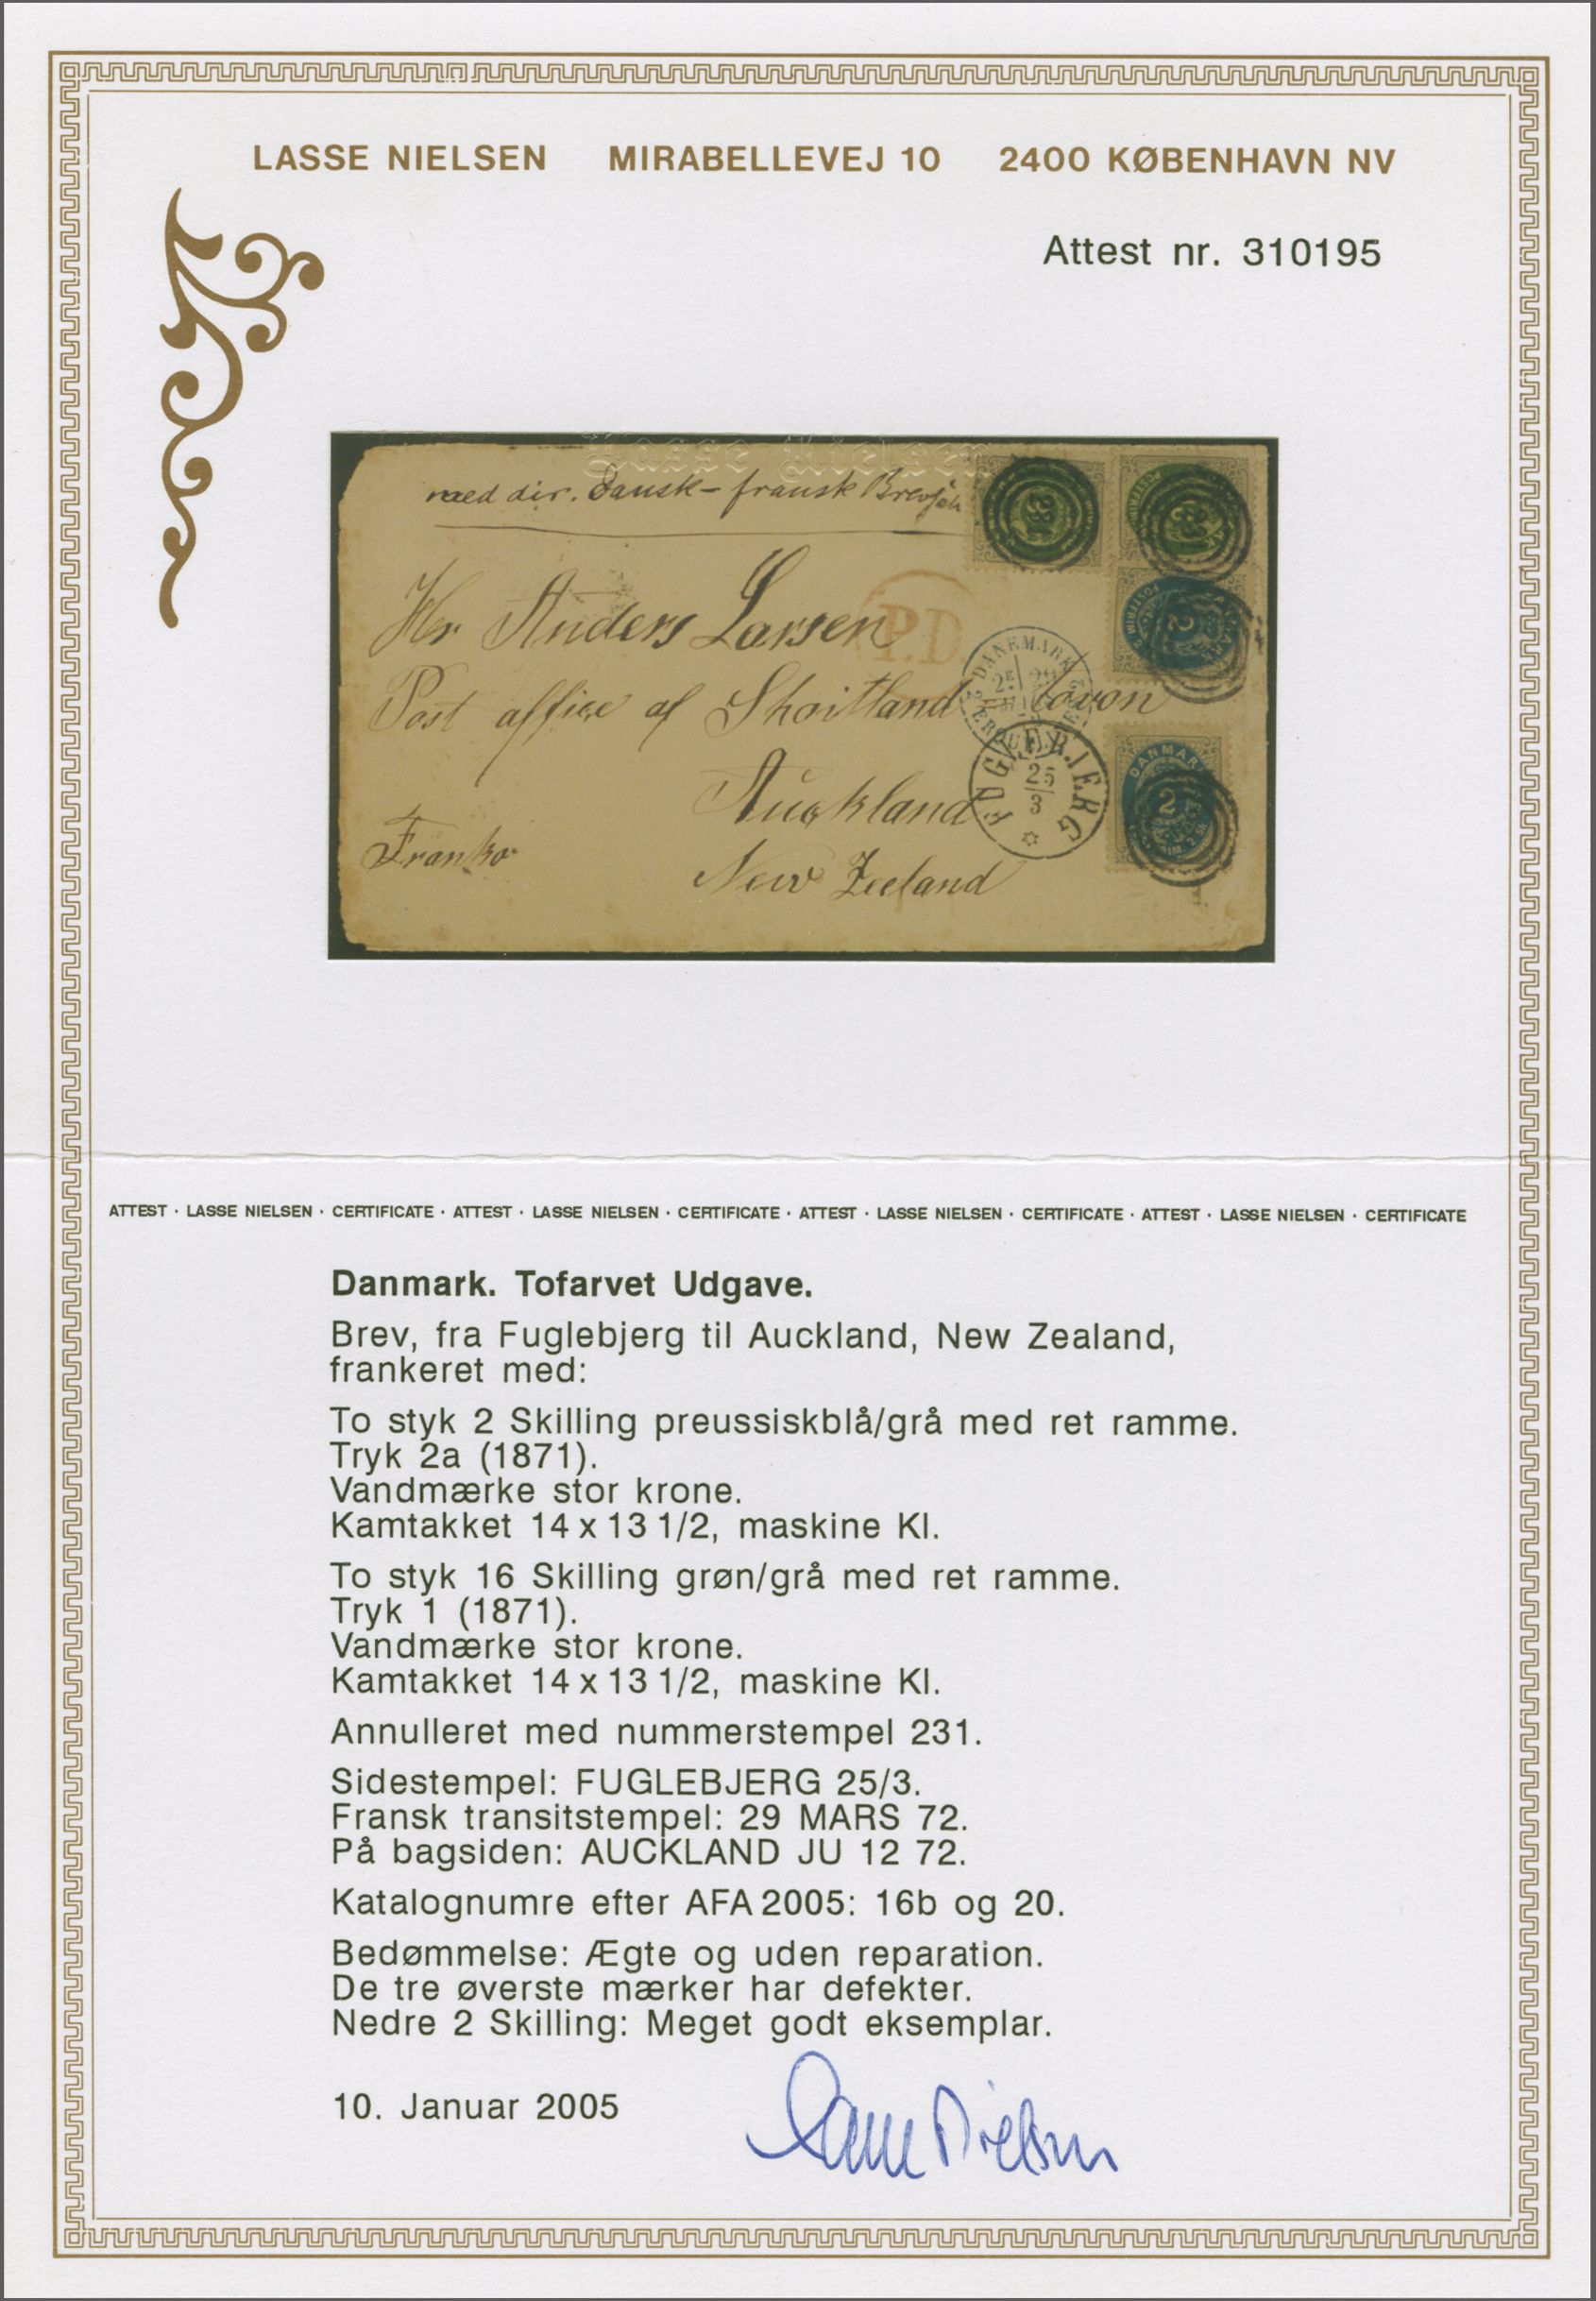 LASSE NIELSEN MIRABELLEVEJ 10 2400 KØBENHAVN NV
Attest nr. 310195
Lasse Nielsen
med dir. dansk-fransk
Hr Anders Larsen
P.D.
DANEMARK
29
Post office af Shoitland
FUGLEBJERG
25
3
DANMARK
2
Auckland
Franko
New Zeeland
ATTEST · LASSE NIELSEN · CERTIFICATE · ATTEST · LASSE NIELSEN · CERTIFICATE · ATTEST · LASSE NIELSEN · CERTIFICATE · ATTEST · LASSE NIELSEN · CERTIFICATE
Danmark. Tofarvet Udgave.
Brev, fra Fuglebjerg til Auckland, New Zealand,
frankeret med:
To styk 2 Skilling preussiskblå/grå med ret ramme.
Tryk 2a (1871).
Vandmærke stor krone.
Kamtakket 14 x 13 1/2, maskine Kl.
To styk 16 Skilling grøn/grå med ret ramme.
Tryk 1 (1871).
Vandmærke stor krone.
Kamtakket 14 x 13 1/2, maskine Kl.
Annulleret med nummerstempel 231.
Sidestempel: FUGLEBJERG 25/3.
Fransk transitstempel: 29 MARS 72.
På bagsiden: AUCKLAND JU 12 72.
Katalognumre efter AFA 2005: 16b og 20.
Bedømmelse: Ægte og uden reparation.
De tre øverste mærker har defekter.
Nedre 2 Skilling: Meget godt eksemplar.
10. Januar 2005
Lasse Nielsen